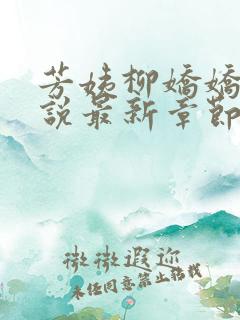 芳姨柳嬌嬌
說最新章節
微微遐迩
未经同意禁止转载